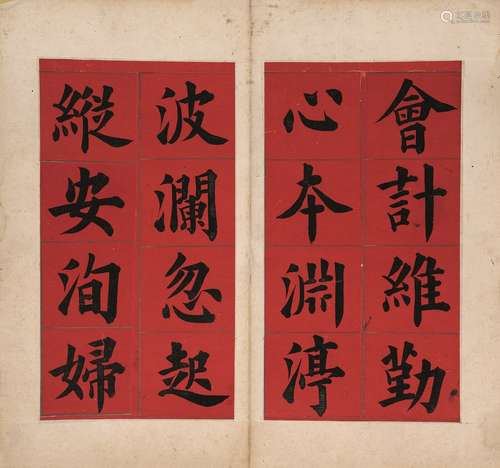 會計維勤
心本淵渟
波瀾忽起
縱安洵婦